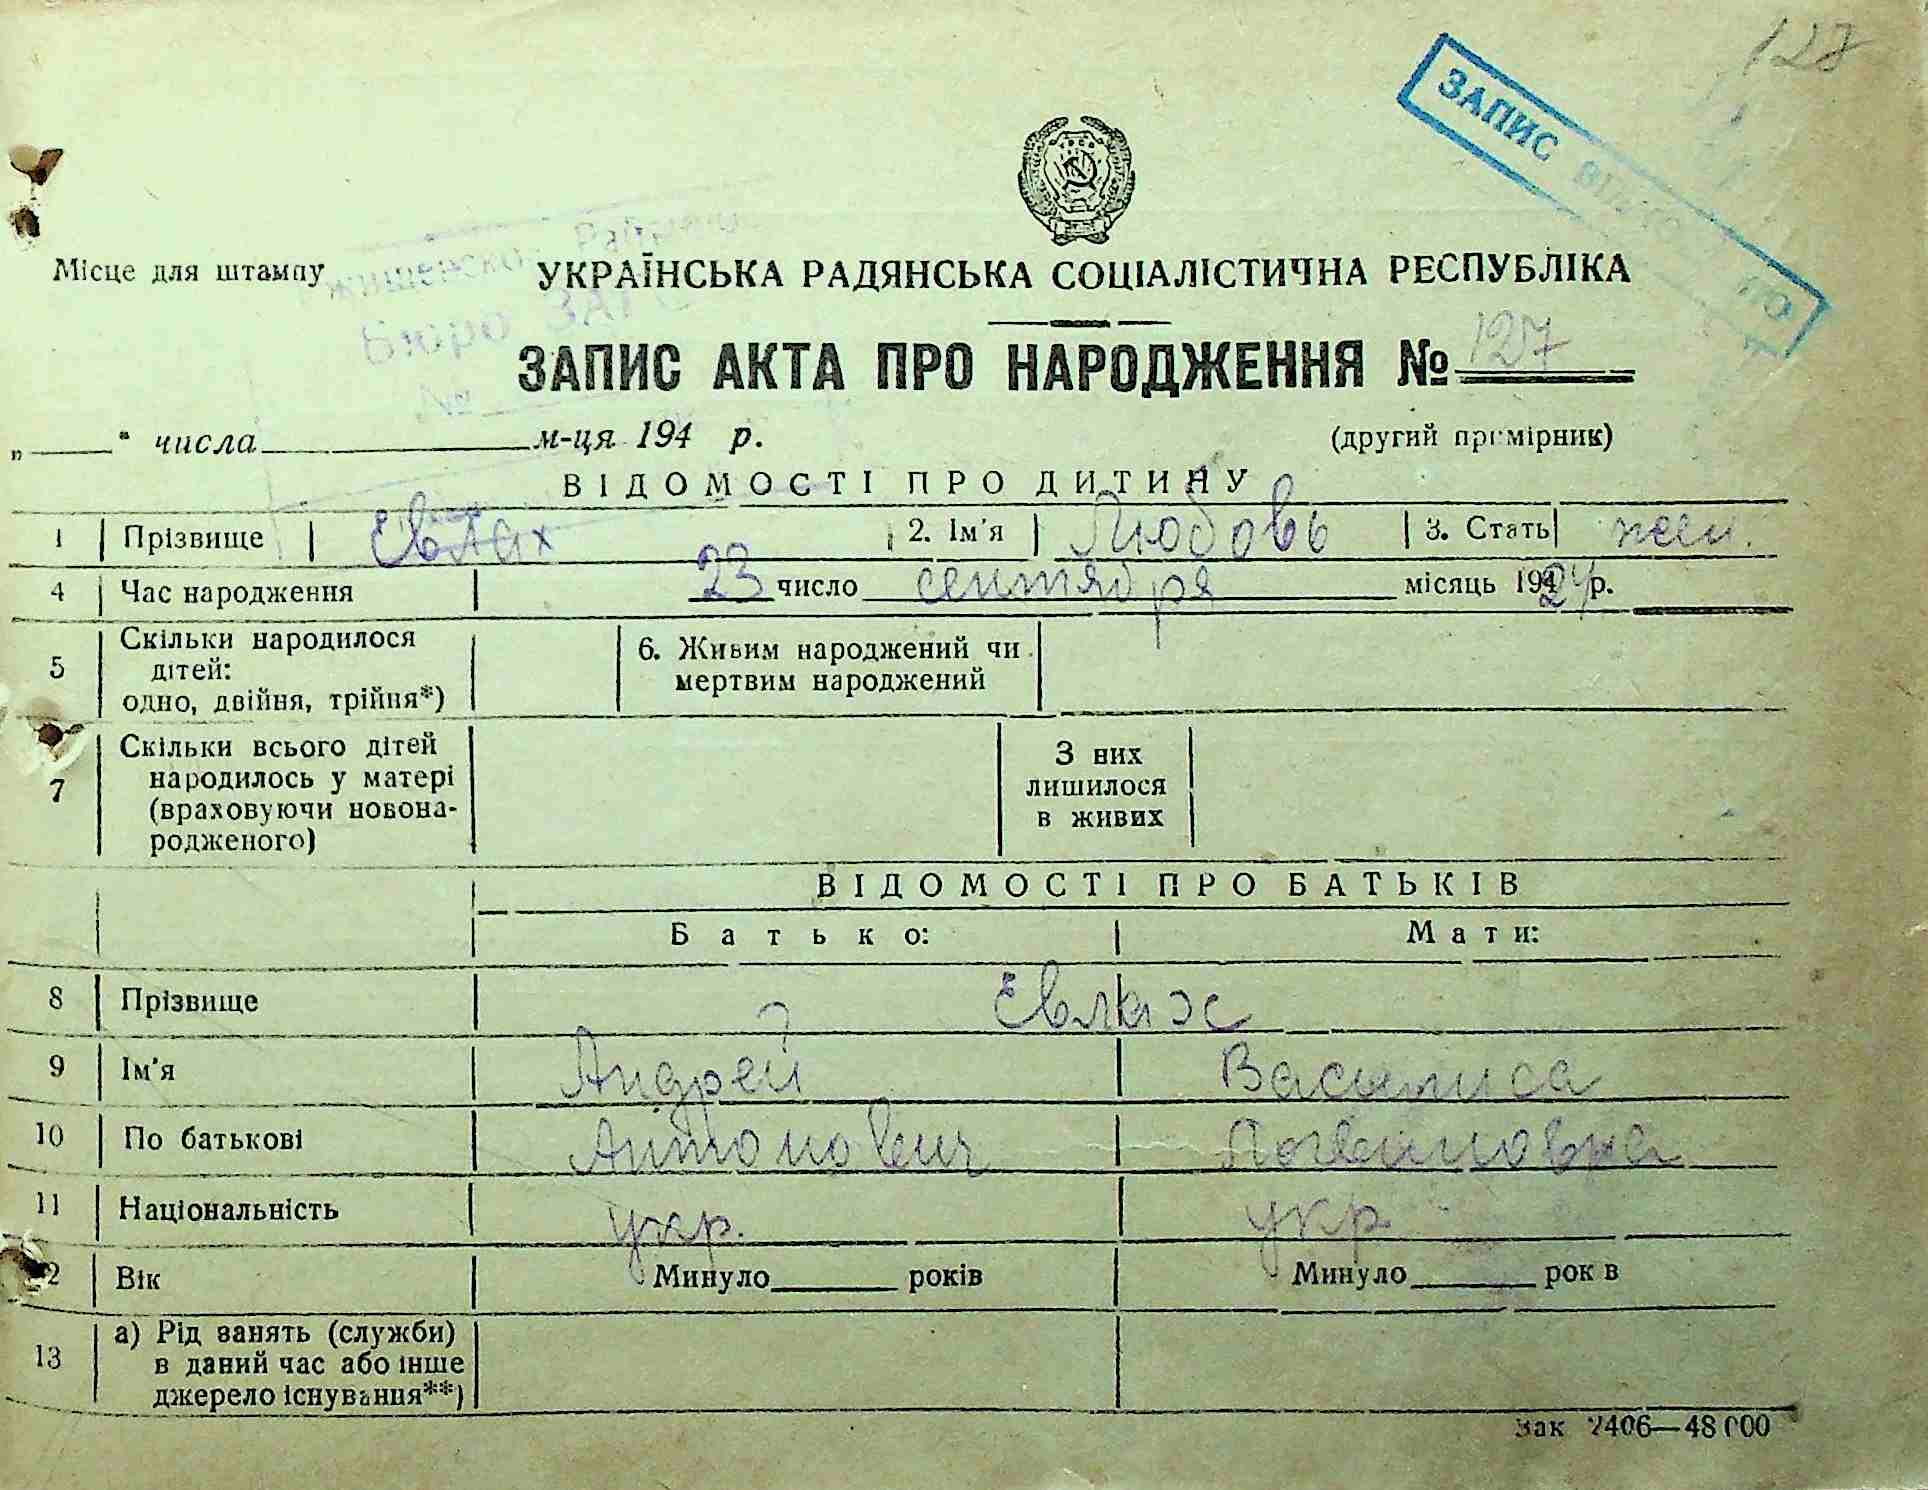 128
ЗАПИС ВІДНО ПО
Місце для штампу
Бюро ЗАГС
№
УКРАЇНСЬКА РАДЯНСЬКА СОЦІАЛІСТИЧНА РЕСПУБЛІКА
ЗАПИС АКТА ПРО НАРОДЖЕННЯ № 127
„ “ числа м-ця 194 р. (другий примірник)
ВІДОМОСТІ ПРО ДИТИНУ
1 Прізвище Евлах 2. Ім'я Любовь 3. Стать жен.
4 Час народження 23 число сентября місяць 1924 р.
5 Скільки народилося дітей: одно, двійня, трійня*) 6. Живим народжений чи мертвим народжений
7 Скільки всього дітей народилось у матері (враховуючи новонародженого) З них лишилося в живих
ВІДОМОСТІ ПРО БАТЬКІВ
Батько: Мати:
8 Прізвище Евлах
9 Ім'я Андрей Василиса
10 По батькові Антонович Логвиновна
11 Національність укр. укр
12 Вік Минуло років Минуло років
13 а) Рід занять (служби) в даний час або інше джерело існування**)
Зак 2406—48000